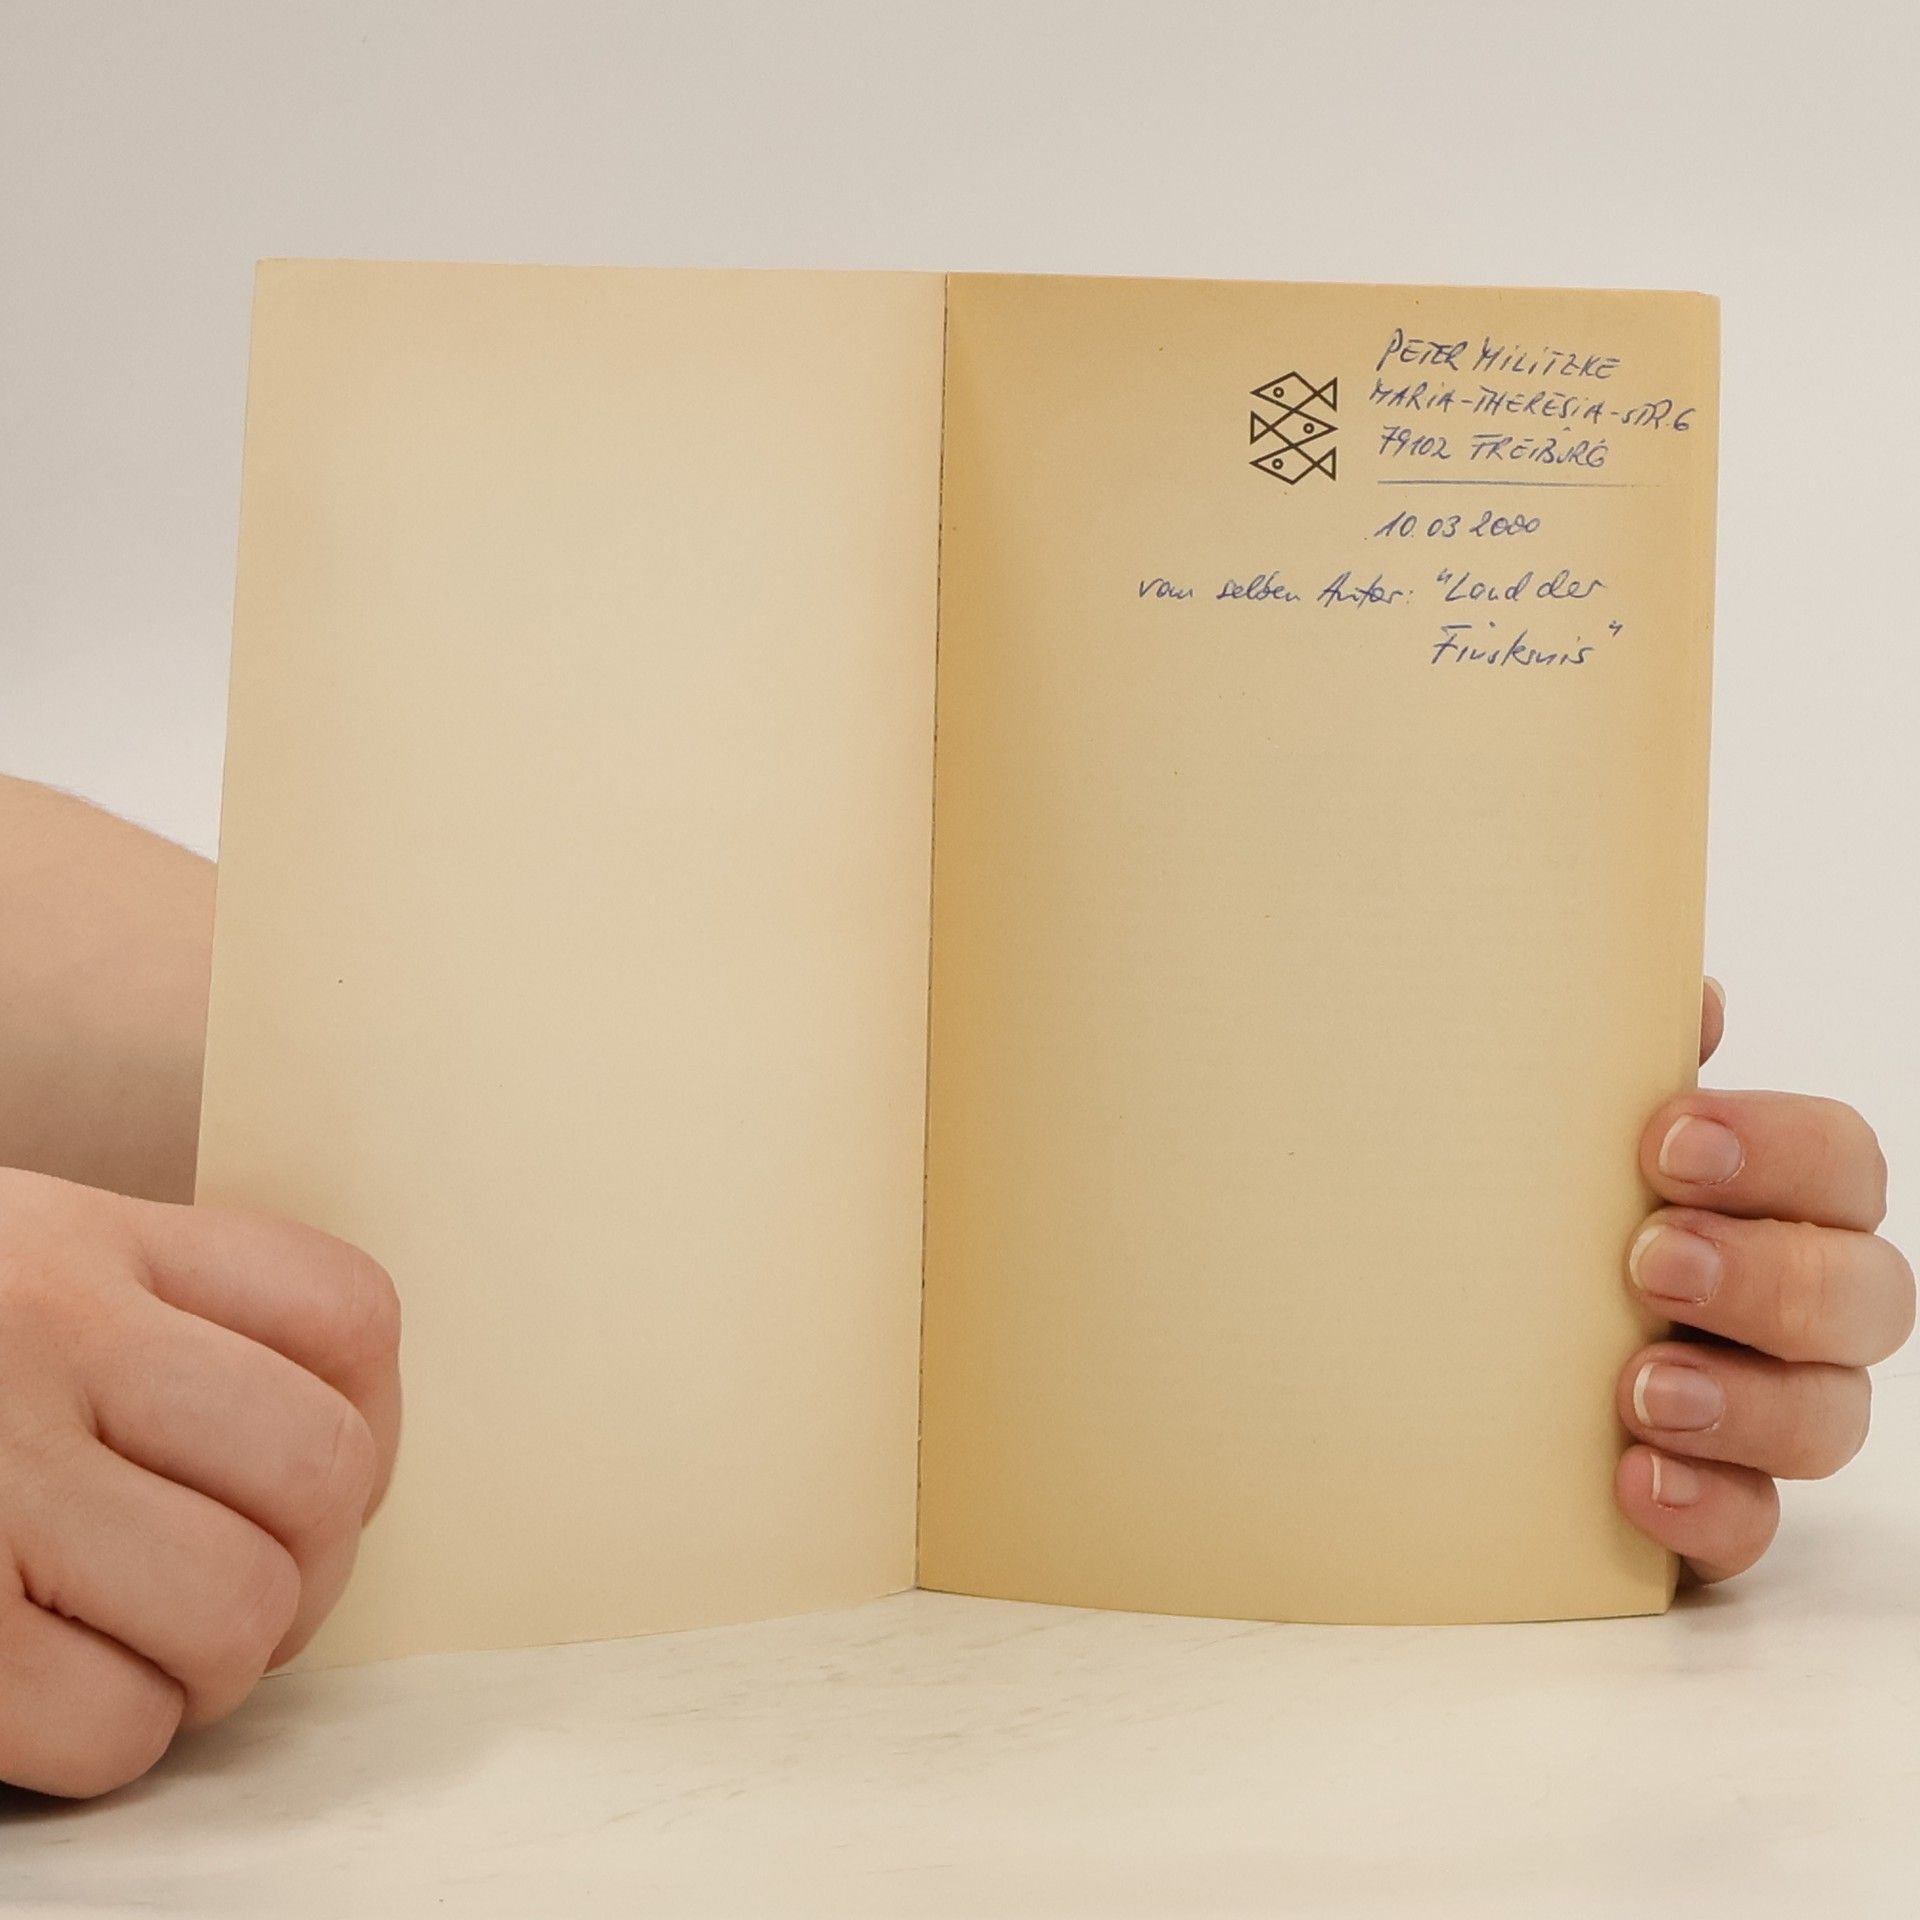 PETER MILITZKE
MARIA-THERESIA-STR. 6
79102 FREIBURG
10.03 2000
vom selben Autor: "Land der
Finsternis"